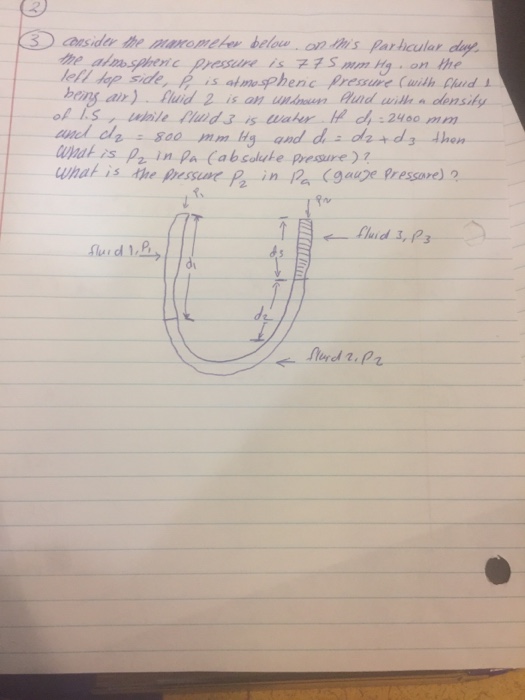 2
3 consider the manometer below. on this particular day,
the atmospheric pressure is 775 mm Hg. on the
left top side, P1 is atmospheric Pressure (with fluid 1
being air). fluid 2 is an unknown fluid with a density
of 1.5, while fluid 3 is water. If d1 = 2400 mm
and d2 = 800 mm Hg and d1 = d2 + d3 then
what is P2 in Pa (absolute Pressure)?
what is the pressure P2 in Pa (gauge Pressure)?
P1
P2
fluid 1, P1
d1
d3
fluid 3, P3
d2
fluid 2, P2